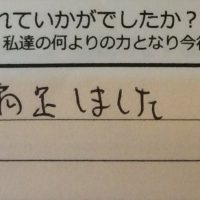 れていかがでしたか？
私達の何よりの力となり今
満足しました